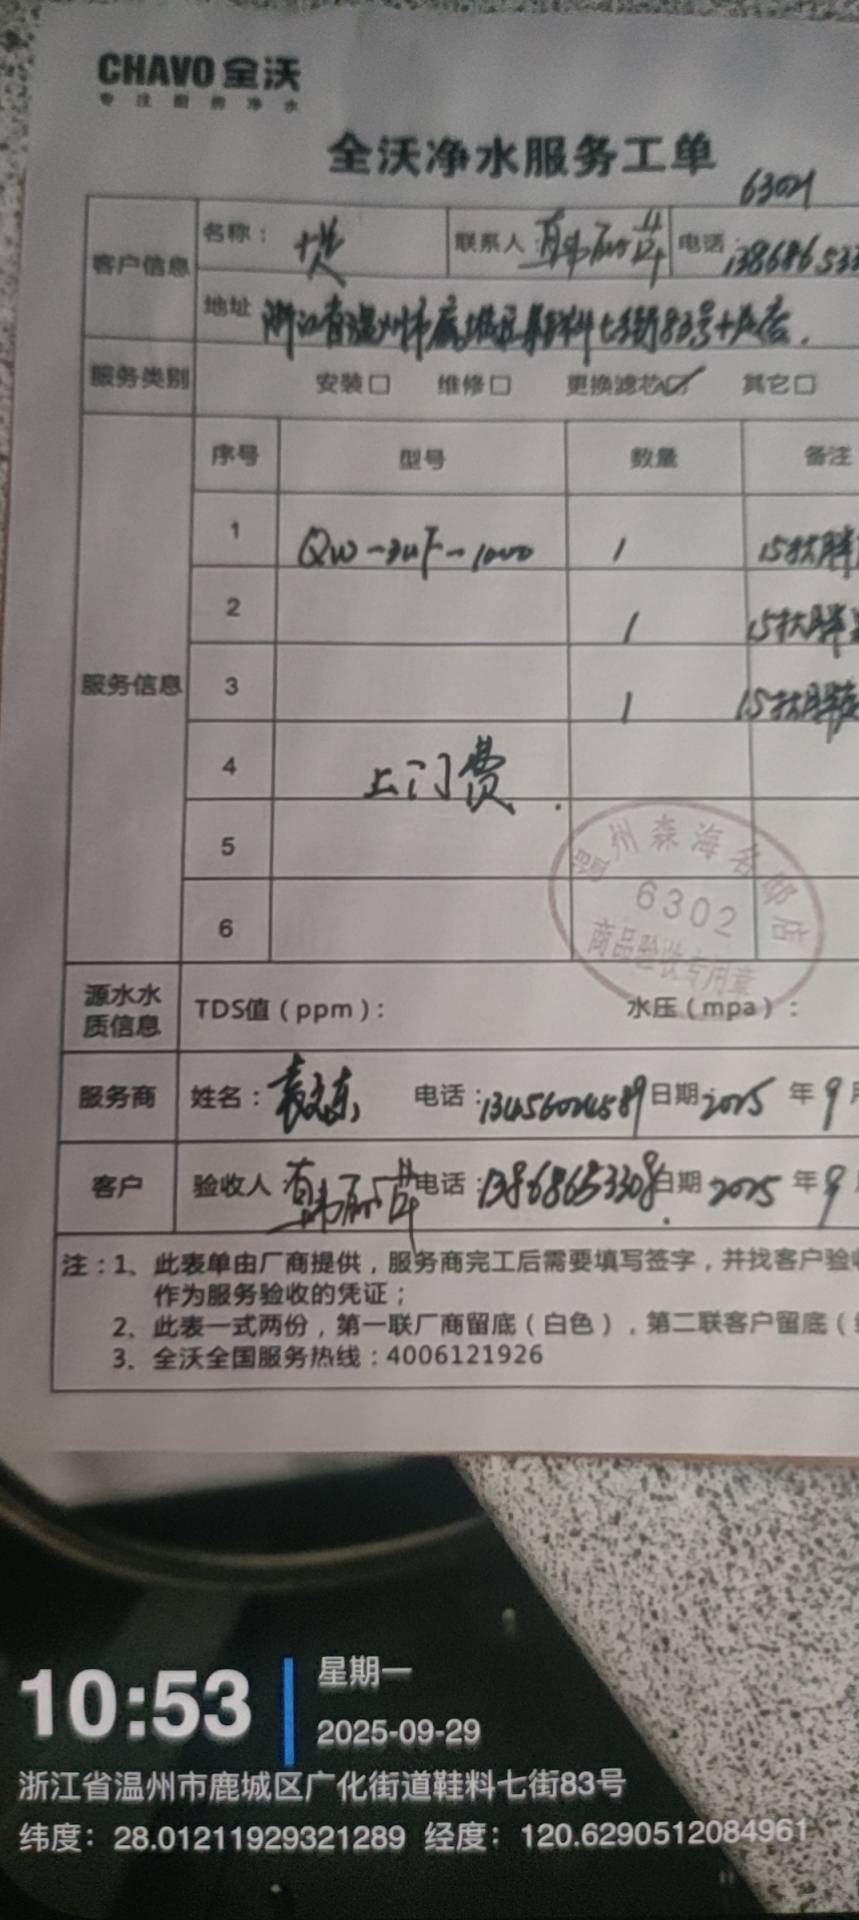 CHAVO 全沃
专注厨房净水
全沃净水服务工单
63021
客户信息 名称： 联系人： 电话：138686533
地址 浙江省温州市鹿城区鞋料七街83号
服务类别 安装□ 维修□ 更换滤芯☑ 其它□
服务信息 序号 型号 数量 备注
1 QW-3UF-1000 1 15寸大胖
2 1 15寸大胖
3 1 15寸大胖
4 上门费
5
6
温州森海名邸店
6302
商品验收专用章
源水水质信息 TDS值（ppm）： 水压（mpa）：
服务商 姓名： 电话：13456024589 日期：2025 年 9
客户 验收人 电话：13868653308 日期 2025 年 9
注：1、此表单由厂商提供，服务商完工后需要填写签字，并找客户验
作为服务验收的凭证；
2、此表一式两份，第一联厂商留底（白色），第二联客户留底（
3、全沃全国服务热线：4006121926
10:53 星期一
2025-09-29
浙江省温州市鹿城区广化街道鞋料七街83号
纬度：28.01211929321289 经度：120.6290512084961